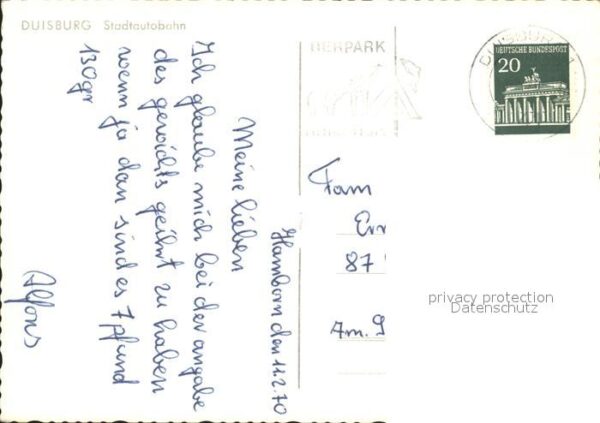 DUISBURG Stadtautobahn
Hamborn den 11.2.70
Meine lieben
Ich glaube mich bei der angabe
des gewichts geihrt zu haben
wenn ja dan sind es 7 pfund
130gr
Alfons
TIERPARK
DUISBURG 1
DEUTSCHE BUNDESPOST
20
Fam
87
Am.
privacy protection
Datenschutz